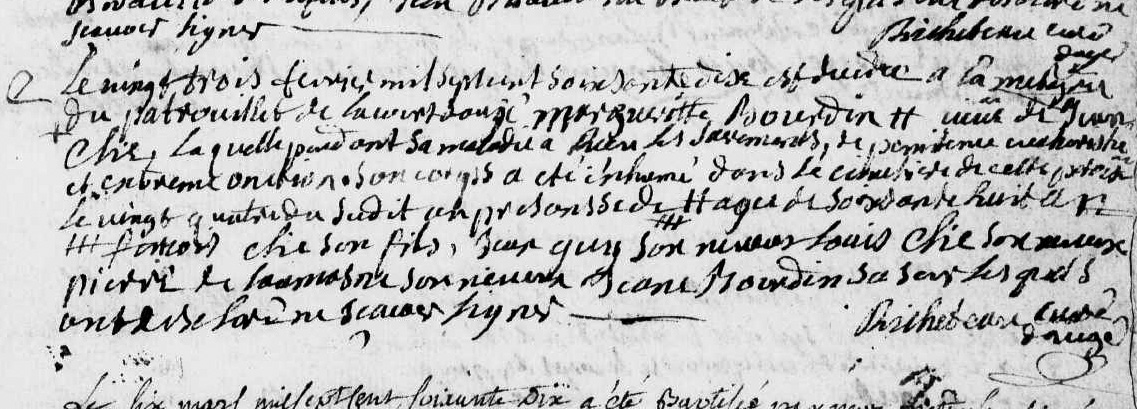 scavoir signer
Bricheteau curé
d'ougé
Le vingt trois fevrier mil sept cent soixante dix est decedée a la metayrie
du patrouillet de la court d'ougé margueritte Bourdin # veuve de Jean
Clie, laquelle pendant sa maladie a Recu les sacrements, de penitence eucharistie
et extreme onction. son corps a été inhumé dans le cimetiere de cette paroisse
le vingt quatre du sudit en presensse de # agée de soixante huit an
# francois Clie son fils, Jean guy son neveu Louis Clie son neveux
pierre de laumosne son neveux Jeane Bourdin sa seur lesquels
ont declaré ne scavoir signer
Bricheteau curé
d'ougé
Le six mars mil sept cent soixante dix a été Baptisé